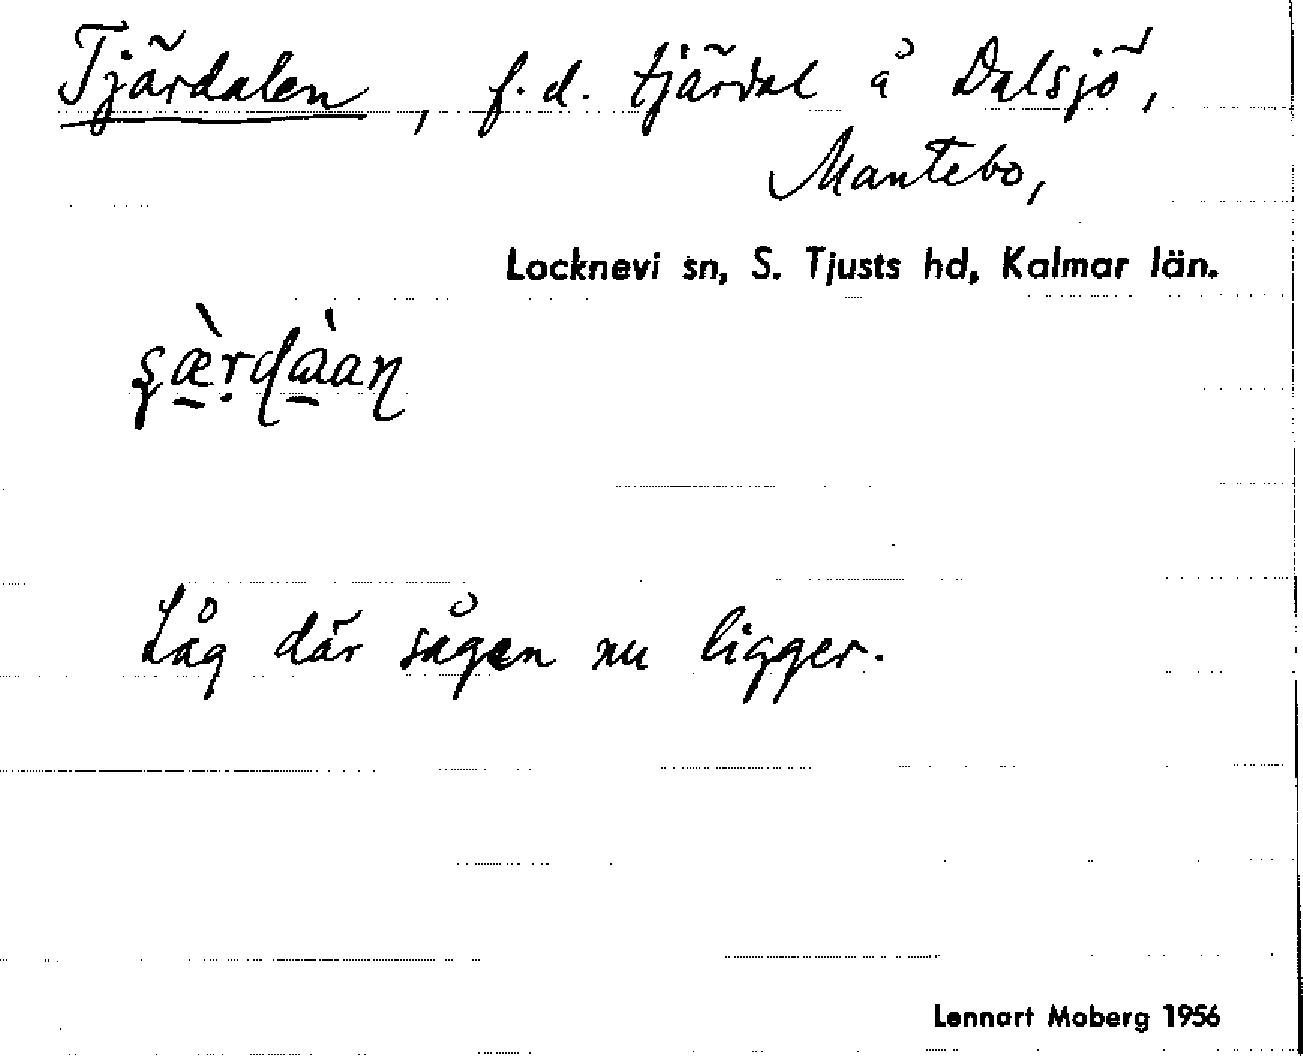 Tjärdalen, f.d. tjärdal å Dalsjö,
Mantebo,
Locknevi sn, S. Tjusts hd, Kalmar län.
Låg där sågen nu ligger.
Lennart Moberg 1956